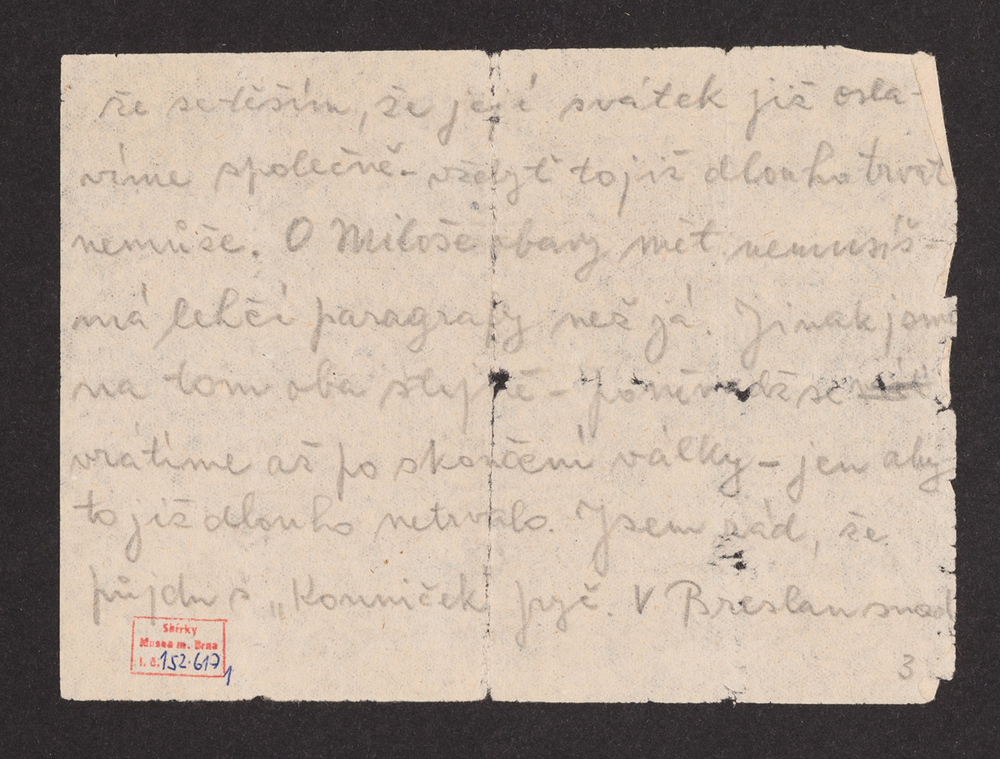 že se těším, že její svátek již osla-
víme společně - vždyť to již dlouho trvat
nemůže. O Miloše obavy mět nemusíš -
má lehčí paragrafy než já. Jinak jsme
na tom oba stejně - poněvadž se
vrátíme až po skončení války - jen aby
to již dlouho netrvalo. Jsem rád, že
půjdu s „Kouniček" pryč. V Breslau snad
Sbírky
Musea m. Brna
i. č. 152.617/1
3